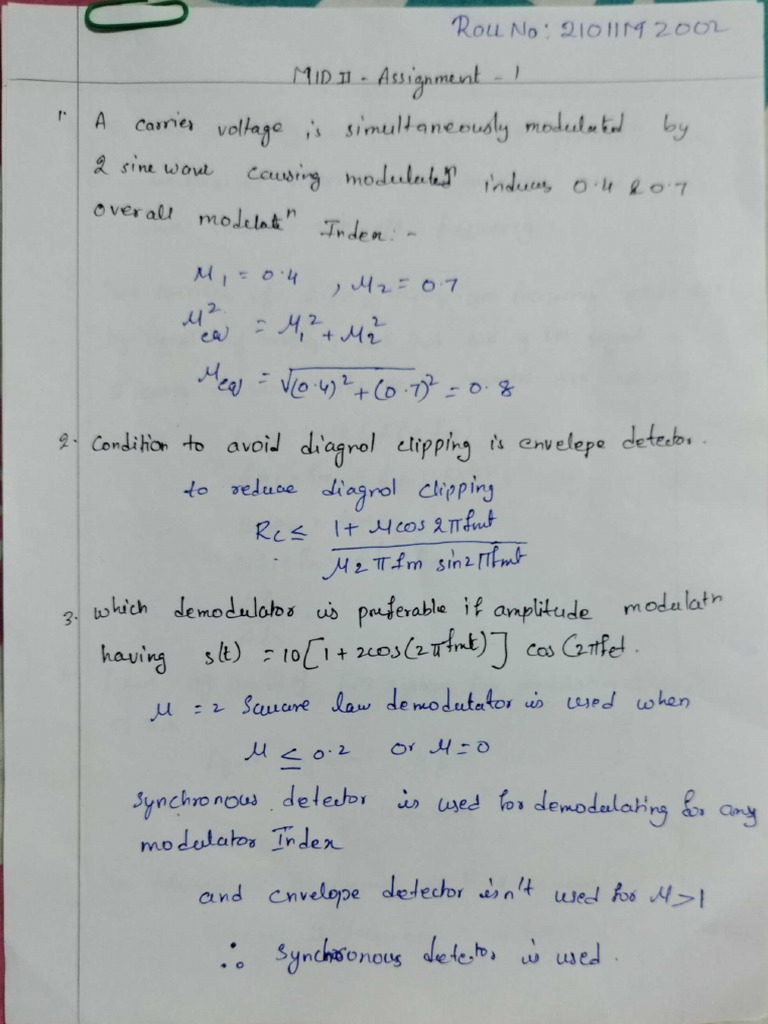 Roll No: 21011M2002
MID II - Assignment - 1
1. A carrier voltage is simultaneously modulated by
2 sine wave causing modulatedⁿ induces 0.4 & 0.7
overall modelatⁿ Index:-
μ₁ = 0.4 , μ₂ = 0.7
μ²eq = μ₁² + μ₂²
μeq = √(0.4)² + (0.7)² = 0.8
2. Condition to avoid diagnol clipping is envelepe detector.
to reduce diagnol clipping
Rc ≤ 1 + μ cos 2πfmt
μ 2πfm sin 2πfmt
3. which demodulator is preferable if amplitude modulatn
having s(t) = 10[1 + 2cos(2πfmt)] cos (2πfct.
μ = 2 Square law demodutator is used when
μ ≤ 0.2 or μ = 0
Synchronous detector is used for demodelating for any
modulator Index
and envelope detector isn't used for μ>1
∴ Synchronous detector is used.